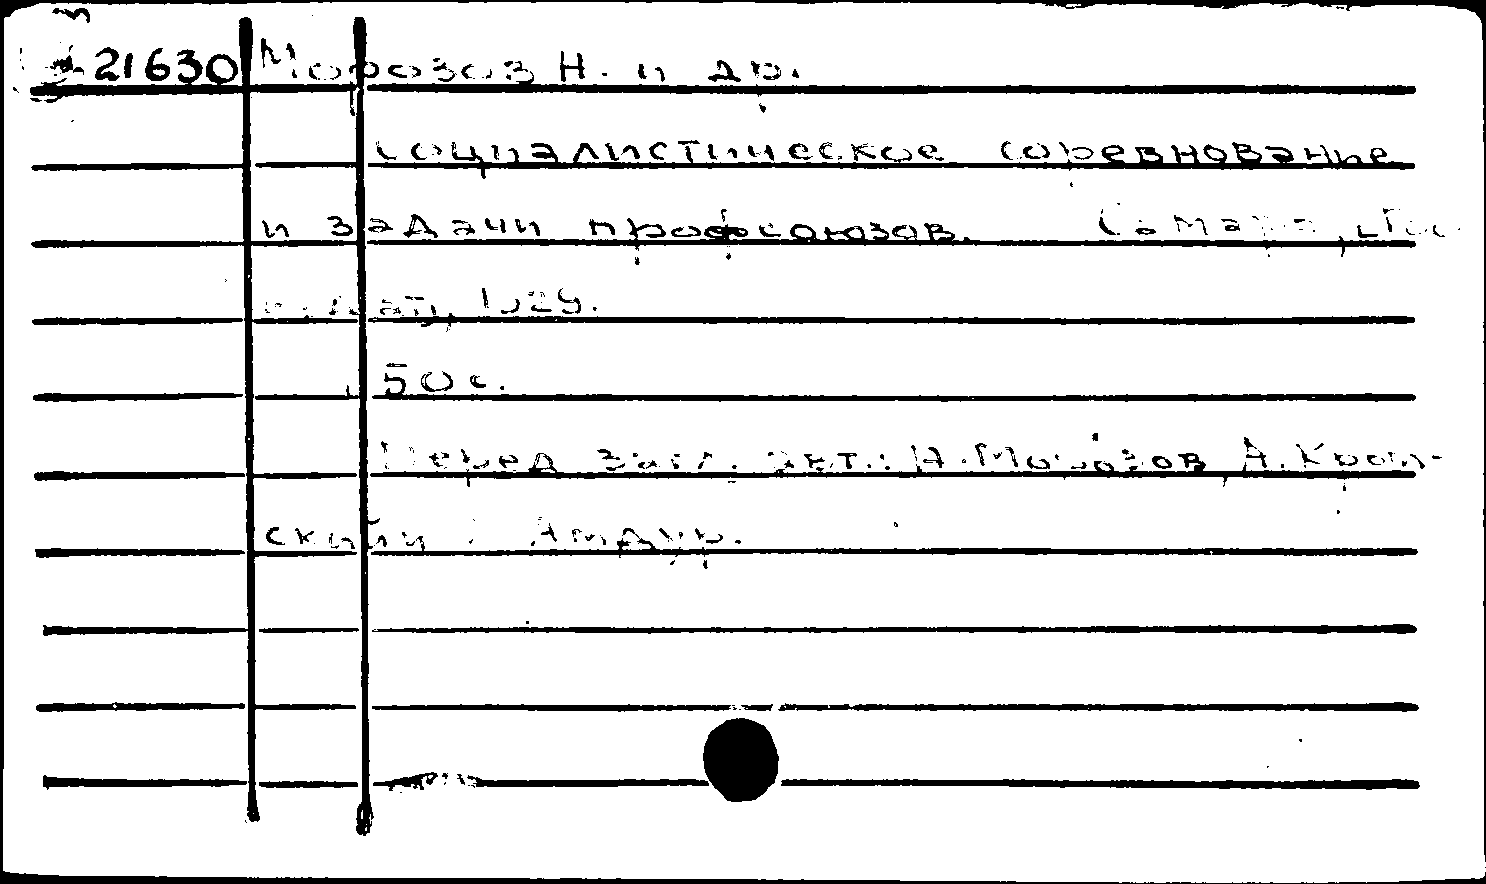 21630 Морозов Н. и др.
Социалистическое соревнование
и задачи профсоюзов. Самара, Гос.
издат, 1929.
50 с.
Перед загл. авт.: Н. Морозов, А. Кром-
ский и Амдур.